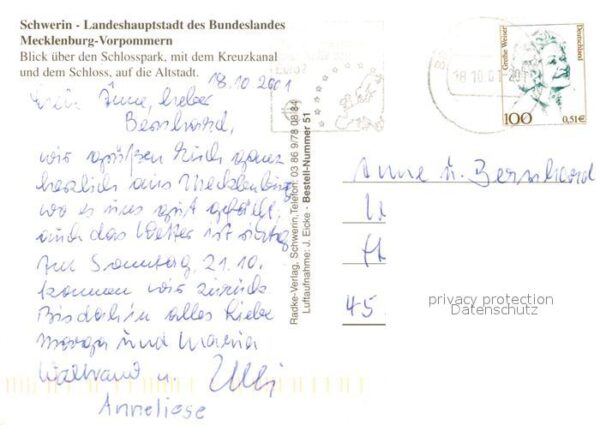 Schwerin - Landeshauptstadt des Bundeslandes
Mecklenburg-Vorpommern
Blick über den Schlosspark, mit dem Kreuzkanal
und dem Schloss, auf die Altstadt.
18.10 2001
Änne, lieber
Bernhard,
wir grüßen Euch ganz
herzlich aus Mecklenburg
wo es uns gut gefällt,
auch das Wetter ist
Am Sonntag, 21.10.
kommen wir zurück
Bisdahin alles Liebe
Marga und Maria
Waltraud u. Ulli
Anneliese
Radke-Verlag, Schwerin, Telefon 03 86 9/78 08 84
Luftaufnahme: J. Eicke · Bestell-Nummer 51
Euro?
18.10.01-20
Grethe Weiser
Deutschland
100
0,51€
Anne u. Bernhard
45.
privacy protection
Datenschutz